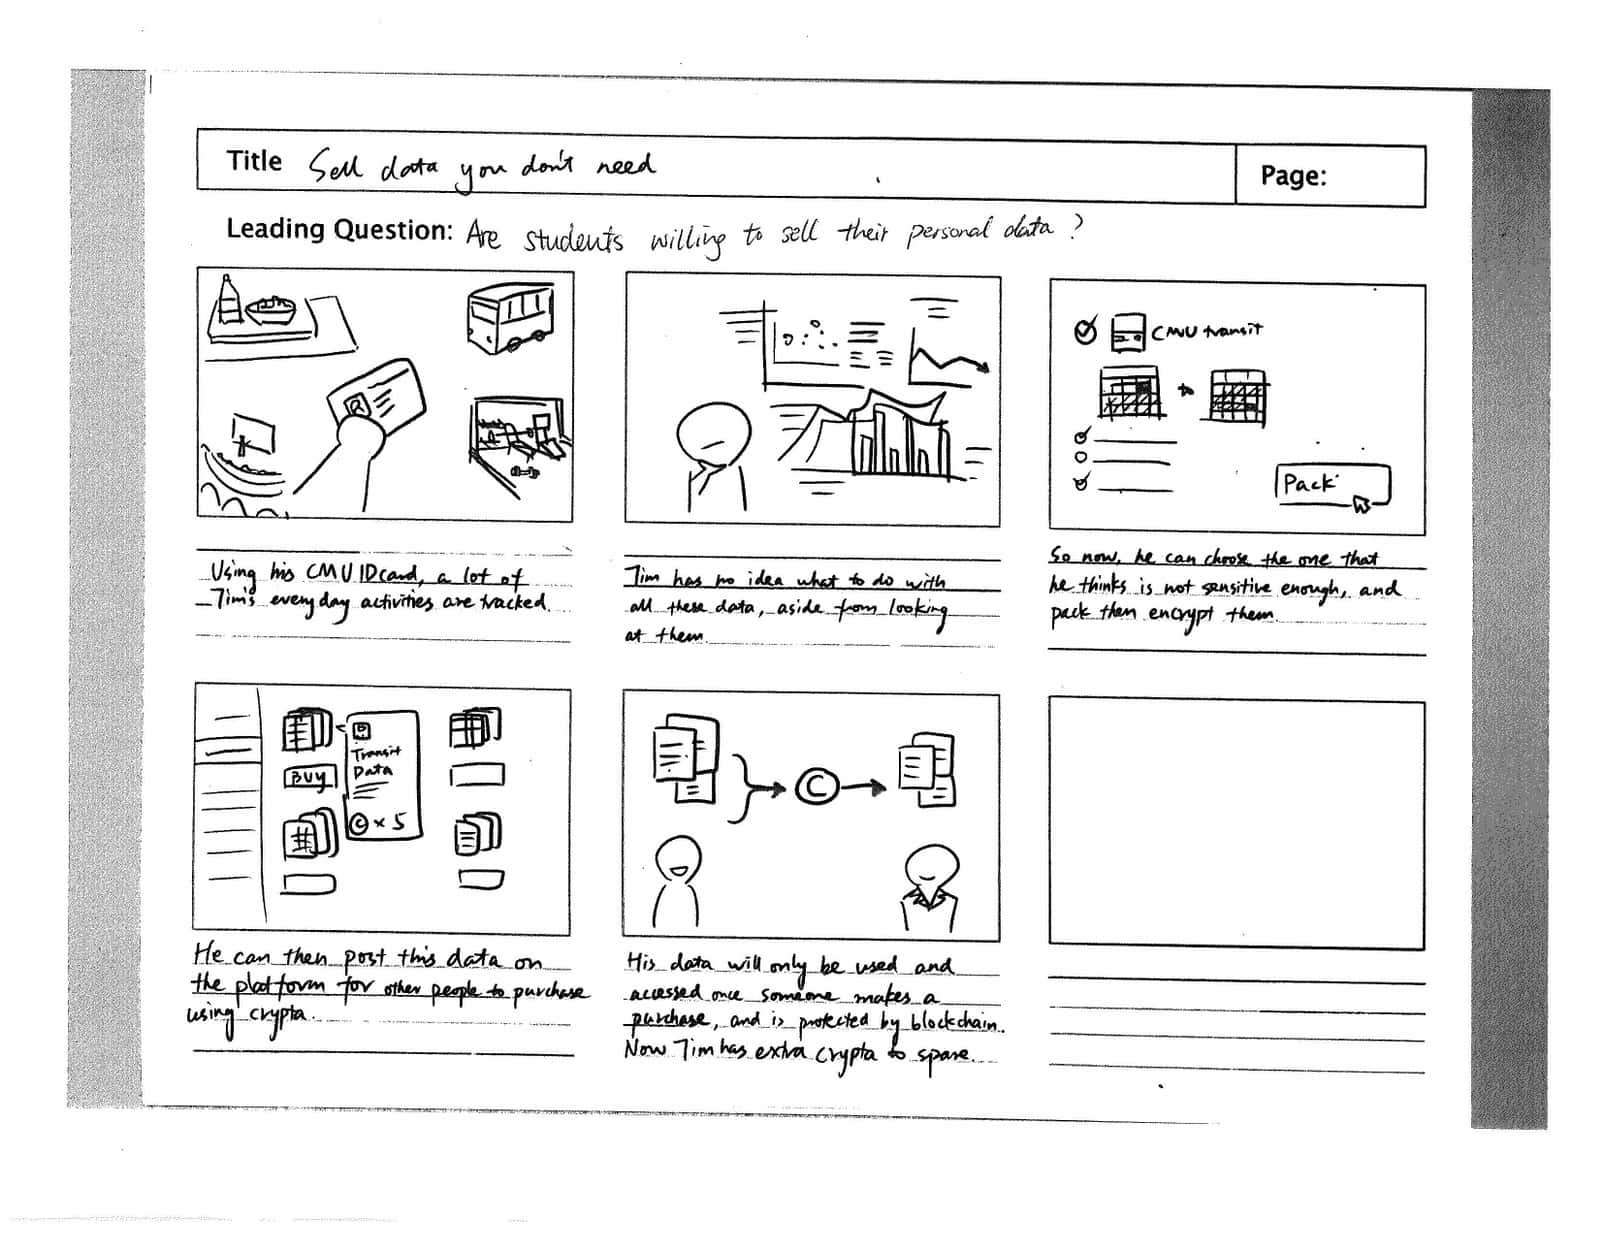 Title Sell data you don't need
Page:
Leading Question: Are students willing to sell their personal data?
CMU transit
Pack
Using his CMU ID card, a lot of
Tim's everyday activities are tracked.
Tim has no idea what to do with
all these data, aside from looking
at them.
So now, he can choose the one that
he thinks is not sensitive enough, and
pack then encrypt them.
BUY
Transit
Data
© × 5
©
He can then post this data on
the platform for other people to purchase
using crypta.
His data will only be used and
accessed once someone makes a
purchase, and is protected by blockchain.
Now Tim has extra crypta to spare.